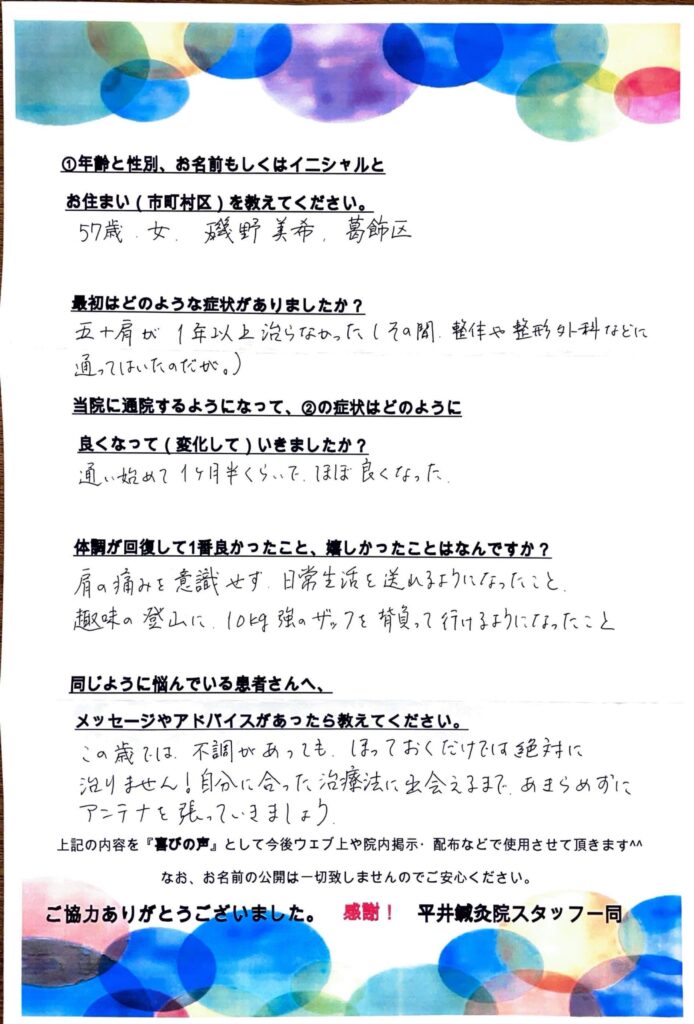 ①年齢と性別、お名前もしくはイニシャルと
お住まい(市町村区)を教えてください。
57歳. 女. 磯野美希. 葛飾区
最初はどのような症状がありましたか?
五十肩が 1年以上治らなかった(その間. 整体や整形外科などに
通ってはいたのだが。)
当院に通院するようになって、②の症状はどのように
良くなって(変化して)いきましたか?
通い始めて 1ヶ月半くらいで. ほぼ良くなった.
体調が回復して1番良かったこと、嬉しかったことはなんですか?
肩の痛みを意識せず. 日常生活を送れるようになったこと.
趣味の登山に. 10kg強のザックを背負って行けるようになったこと
同じように悩んでいる患者さんへ、
メッセージやアドバイスがあったら教えてください。
この歳では. 不調があっても. ほっておくだけでは絶対に
治りません!自分に合った治療法に出会えるまで. あきらめずに
アンテナを張っていきましょう.
上記の内容を『喜びの声』として今後ウェブ上や院内掲示・配布などで使用させて頂きます^^
なお、お名前の公開は一切致しませんのでご安心ください。
ご協力ありがとうございました。 感謝! 平井鍼灸院スタッフ一同